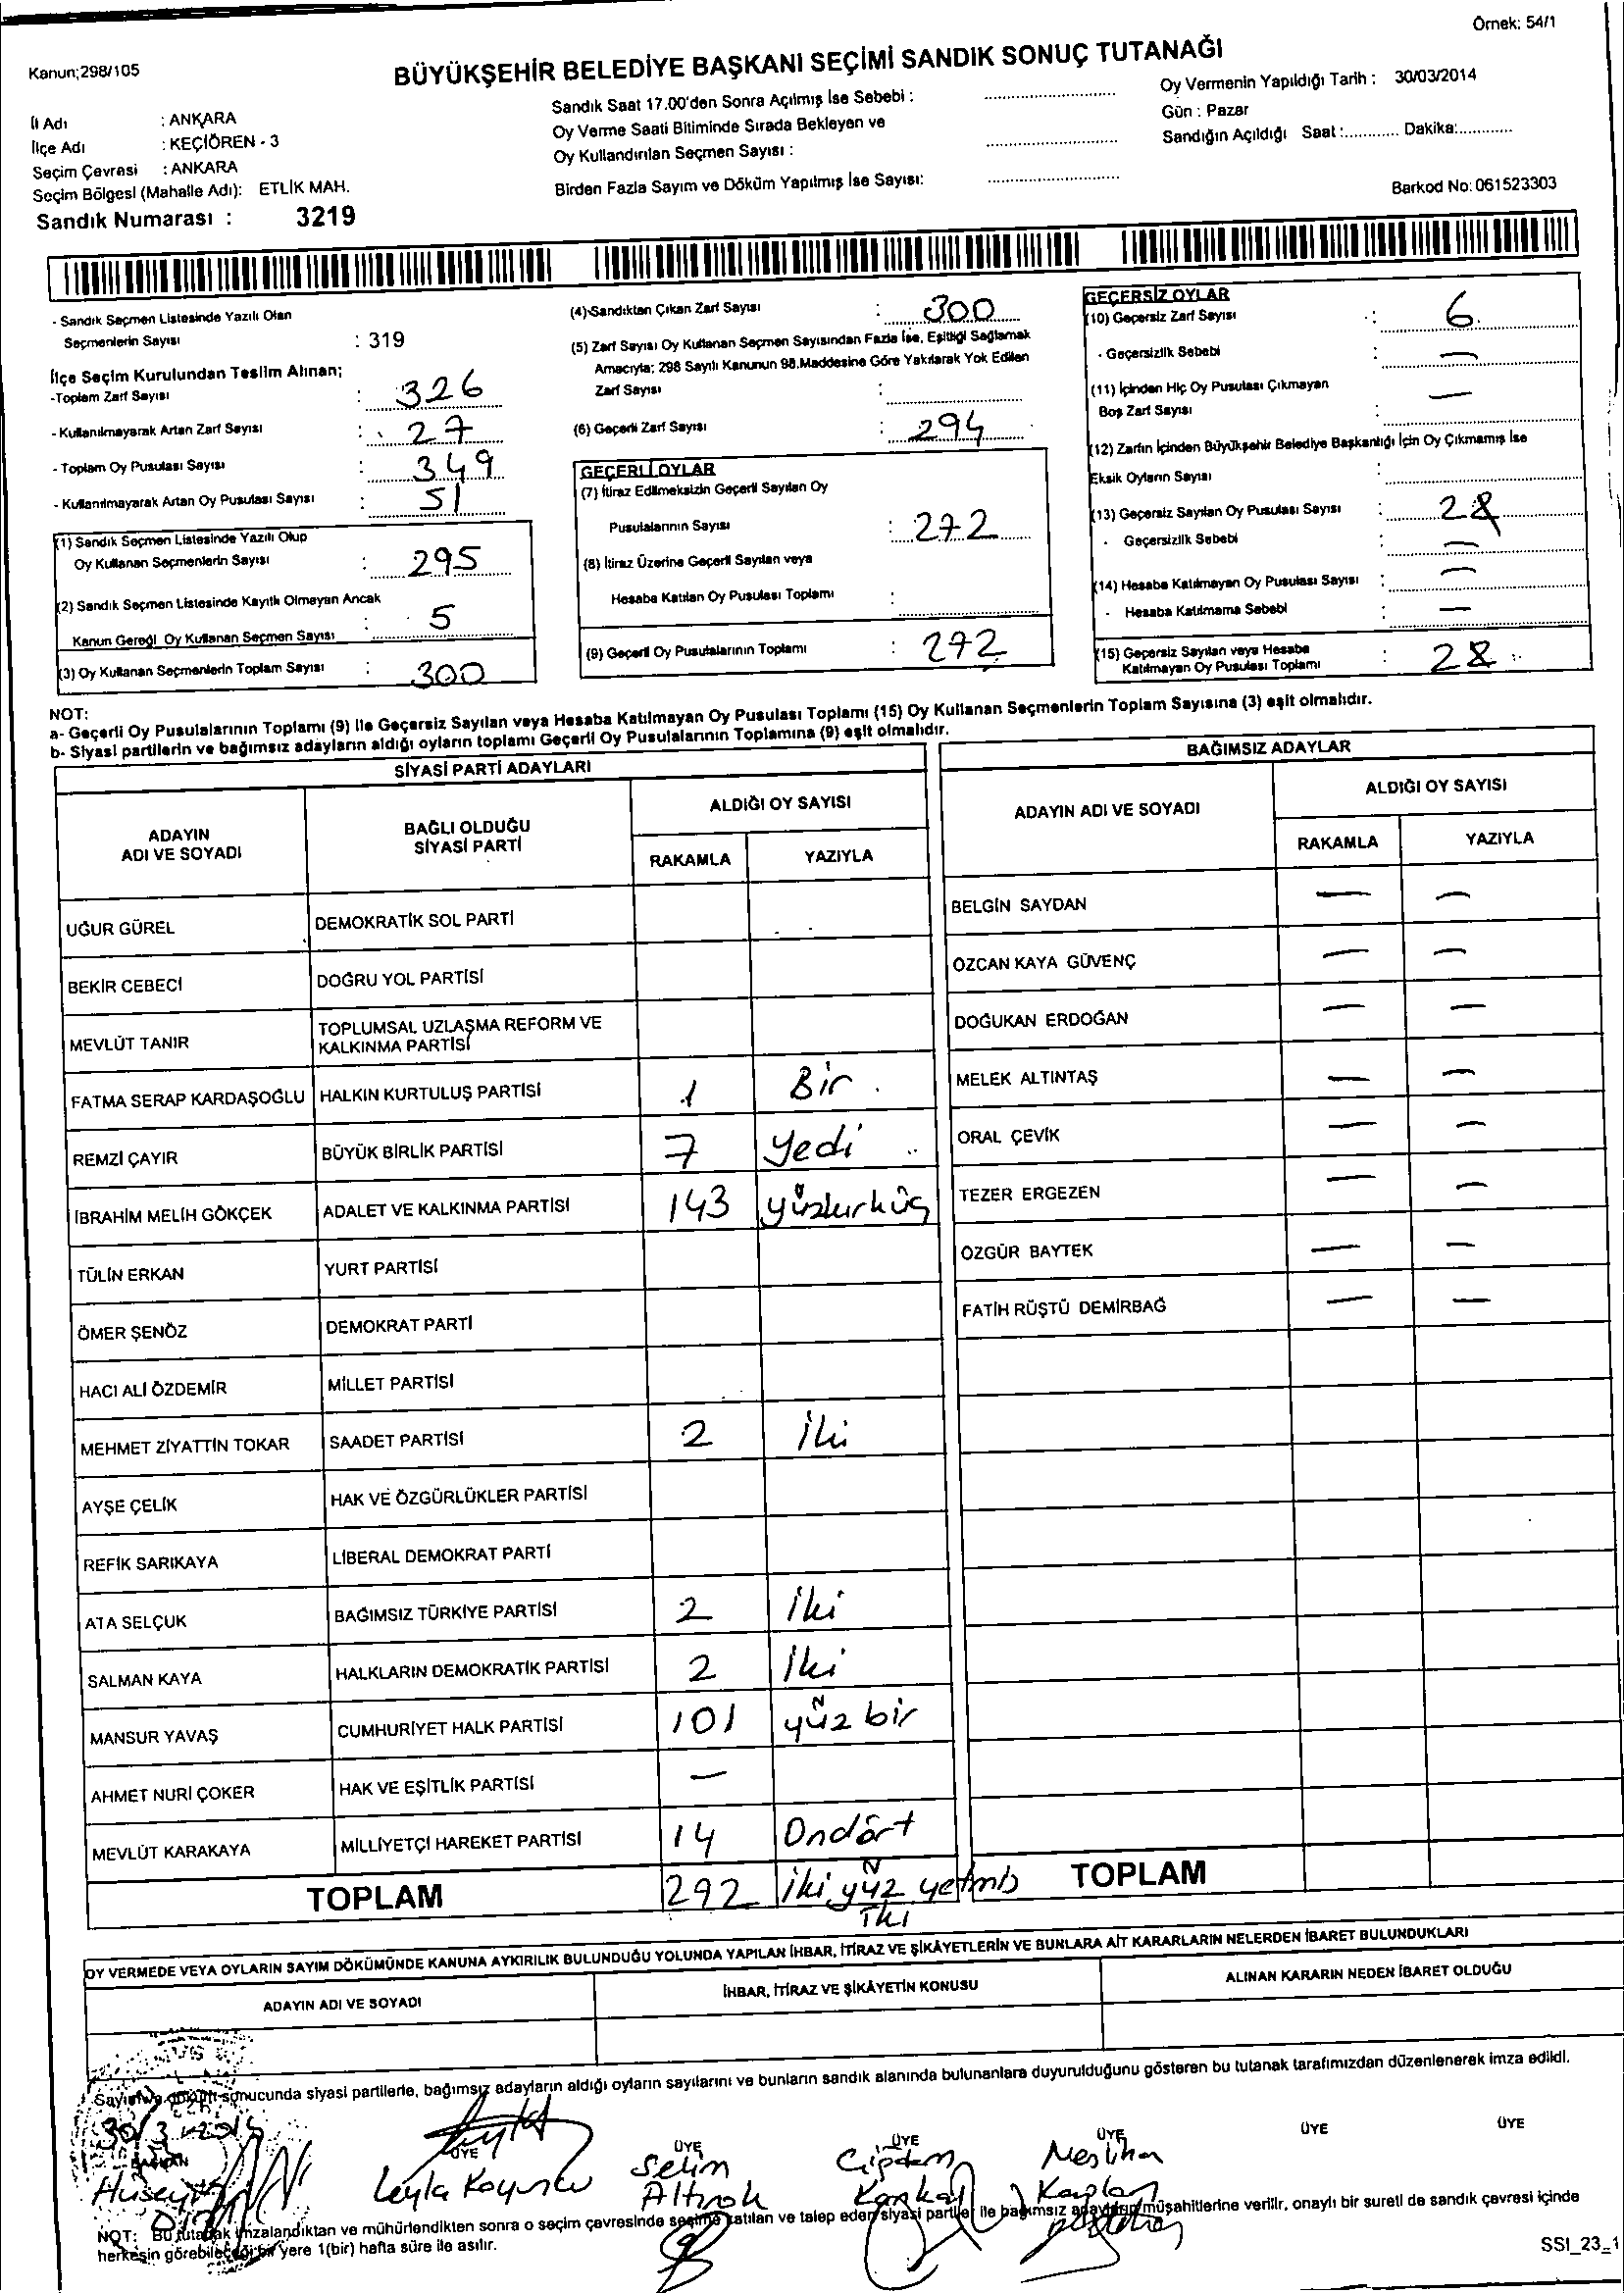 Örnek: 54/1
Kanun;298/105
BÜYÜKŞEHİR BELEDİYE BAŞKANI SEÇİMİ SANDIK SONUÇ TUTANAĞI
İl Adı : ANKARA
İlçe Adı : KEÇİÖREN - 3
Seçim Çevresi : ANKARA
Seçim Bölgesi (Mahalle Adı): ETLİK MAH.
Sandık Numarası : 3219
Sandık Saat 17.00'den Sonra Açılmış İse Sebebi :
Oy Verme Saati Bitiminde Sırada Bekleyen ve
Oy Kullandırılan Seçmen Sayısı :
Birden Fazla Sayım ve Döküm Yapılmış İse Sayısı:
Oy Vermenin Yapıldığı Tarih : 30/03/2014
Gün : Pazar
Sandığın Açıldığı Saat :............ Dakika:............
Barkod No: 061523303
- Sandık Seçmen Listesinde Yazılı Olan
Seçmenlerin Sayısı : 319
İlçe Seçim Kurulundan Teslim Alınan;
-Toplam Zarf Sayısı : 326
- Kullanılmayarak Artan Zarf Sayısı : 27
- Toplam Oy Pusulası Sayısı : 349
- Kullanılmayarak Artan Oy Pusulası Sayısı : 51
(1) Sandık Seçmen Listesinde Yazılı Olup
Oy Kullanan Seçmenlerin Sayısı : 295
(2) Sandık Seçmen Listesinde Kayıtlı Olmayan Ancak
Kanun Gereği Oy Kullanan Seçmen Sayısı : 5
(3) Oy Kullanan Seçmenlerin Toplam Sayısı : 300
(4)-Sandıktan Çıkan Zarf Sayısı : 300
(5) Zarf Sayısı Oy Kullanan Seçmen Sayısından Fazla İse, Eşitliği Sağlamak
Amacıyla; 298 Sayılı Kanunun 98.Maddesine Göre Yakılarak Yok Edilen
Zarf Sayısı :
(6) Geçerli Zarf Sayısı : 294
GEÇERLİ OYLAR
(7) İtiraz Edilmeksizin Geçerli Sayılan Oy
Pusulalarının Sayısı : 272
(8) İtiraz Üzerine Geçerli Sayılan veya
Hesaba Katılan Oy Pusulası Toplamı :
(9) Geçerli Oy Pusulalarının Toplamı : 272
GEÇERSİZ OYLAR
(10) Geçersiz Zarf Sayısı : 6
- Geçersizlik Sebebi : —
(11) İçinden Hiç Oy Pusulası Çıkmayan —
Boş Zarf Sayısı :
(12) Zarfın İçinden Büyükşehir Belediye Başkanlığı İçin Oy Çıkmamış İse
Eksik Oyların Sayısı :
(13) Geçersiz Sayılan Oy Pusulası Sayısı : 28
- Geçersizlik Sebebi : —
(14) Hesaba Katılmayan Oy Pusulası Sayısı : —
- Hesaba Katılmama Sebebi : —
(15) Geçersiz Sayılan veya Hesaba
Katılmayan Oy Pusulası Toplamı : 28
NOT:
a- Geçerli Oy Pusulalarının Toplamı (9) İle Geçersiz Sayılan veya Hesaba Katılmayan Oy Pusulası Toplamı (15) Oy Kullanan Seçmenlerin Toplam Sayısına (3) eşit olmalıdır.
b- Siyasi partilerin ve bağımsız adayların aldığı oyların toplamı Geçerli Oy Pusulalarının Toplamına (9) eşit olmalıdır.
SİYASİ PARTİ ADAYLARI
ADAYIN
ADI VE SOYADI
BAĞLI OLDUĞU
SİYASİ PARTİ
ALDIĞI OY SAYISI
RAKAMLA YAZIYLA
UĞUR GÜREL DEMOKRATİK SOL PARTİ
BEKİR CEBECİ DOĞRU YOL PARTİSİ
MEVLÜT TANIR TOPLUMSAL UZLAŞMA REFORM VE
KALKINMA PARTİSİ
FATMA SERAP KARDAŞOĞLU HALKIN KURTULUŞ PARTİSİ 1 Bir
REMZİ ÇAYIR BÜYÜK BİRLİK PARTİSİ 7 Yedi
İBRAHİM MELİH GÖKÇEK ADALET VE KALKINMA PARTİSİ 143 yüzkırküç
TÜLİN ERKAN YURT PARTİSİ
ÖMER ŞENÖZ DEMOKRAT PARTİ
HACI ALİ ÖZDEMİR MİLLET PARTİSİ
MEHMET ZİYATTİN TOKAR SAADET PARTİSİ 2 İki
AYŞE ÇELİK HAK VE ÖZGÜRLÜKLER PARTİSİ
REFİK SARIKAYA LİBERAL DEMOKRAT PARTİ
ATA SELÇUK BAĞIMSIZ TÜRKİYE PARTİSİ 2 İki
SALMAN KAYA HALKLARIN DEMOKRATİK PARTİSİ 2 İki
MANSUR YAVAŞ CUMHURİYET HALK PARTİSİ 101 yüz bir
AHMET NURİ ÇOKER HAK VE EŞİTLİK PARTİSİ —
MEVLÜT KARAKAYA MİLLİYETÇİ HAREKET PARTİSİ 14 Ondört
TOPLAM 292 İki yüz yetmiş
İki
BAĞIMSIZ ADAYLAR
ADAYIN ADI VE SOYADI
ALDIĞI OY SAYISI
RAKAMLA YAZIYLA
BELGİN SAYDAN — —
ÖZCAN KAYA GÜVENÇ — —
DOĞUKAN ERDOĞAN — —
MELEK ALTINTAŞ — —
ORAL ÇEVİK — —
TEZER ERGEZEN — —
ÖZGÜR BAYTEK — —
FATİH RÜŞTÜ DEMİRBAĞ — —
TOPLAM
OY VERMEDE VEYA OYLARIN SAYIM DÖKÜMÜNDE KANUNA AYKIRILIK BULUNDUĞU YOLUNDA YAPILAN İHBAR, İTİRAZ VE ŞİKÂYETLERİN VE BUNLARA AİT KARARLARIN NELERDEN İBARET BULUNDUKLARI
ADAYIN ADI VE SOYADI
İHBAR, İTİRAZ VE ŞİKÂYETİN KONUSU
ALINAN KARARIN NEDEN İBARET OLDUĞU
Sayım ve döküm sonucunda siyasi partilerle, bağımsız adayların aldığı oyların sayılarını ve bunların sandık alanında bulunanlara duyurulduğunu gösteren bu tutanak tarafımızdan düzenlenerek imza edildi.
30/3/2014
BAŞKAN ÜYE ÜYE ÜYE ÜYE ÜYE ÜYE
Hüseyin
Leyla Koyuncu
Selim
Altınok
Çiğdem
Neslihan
Kaplan
NOT: Bu tutanak imzalandıktan ve mühürlendikten sonra o seçim çevresinde seçime katılan ve talep eden siyasi partiler ile bağımsız adayların müşahitlerine verilir, onaylı bir sureti de sandık çevresi içinde
herkesin görebileceği bir yere 1(bir) hafta süre ile asılır.
SSI_23_1